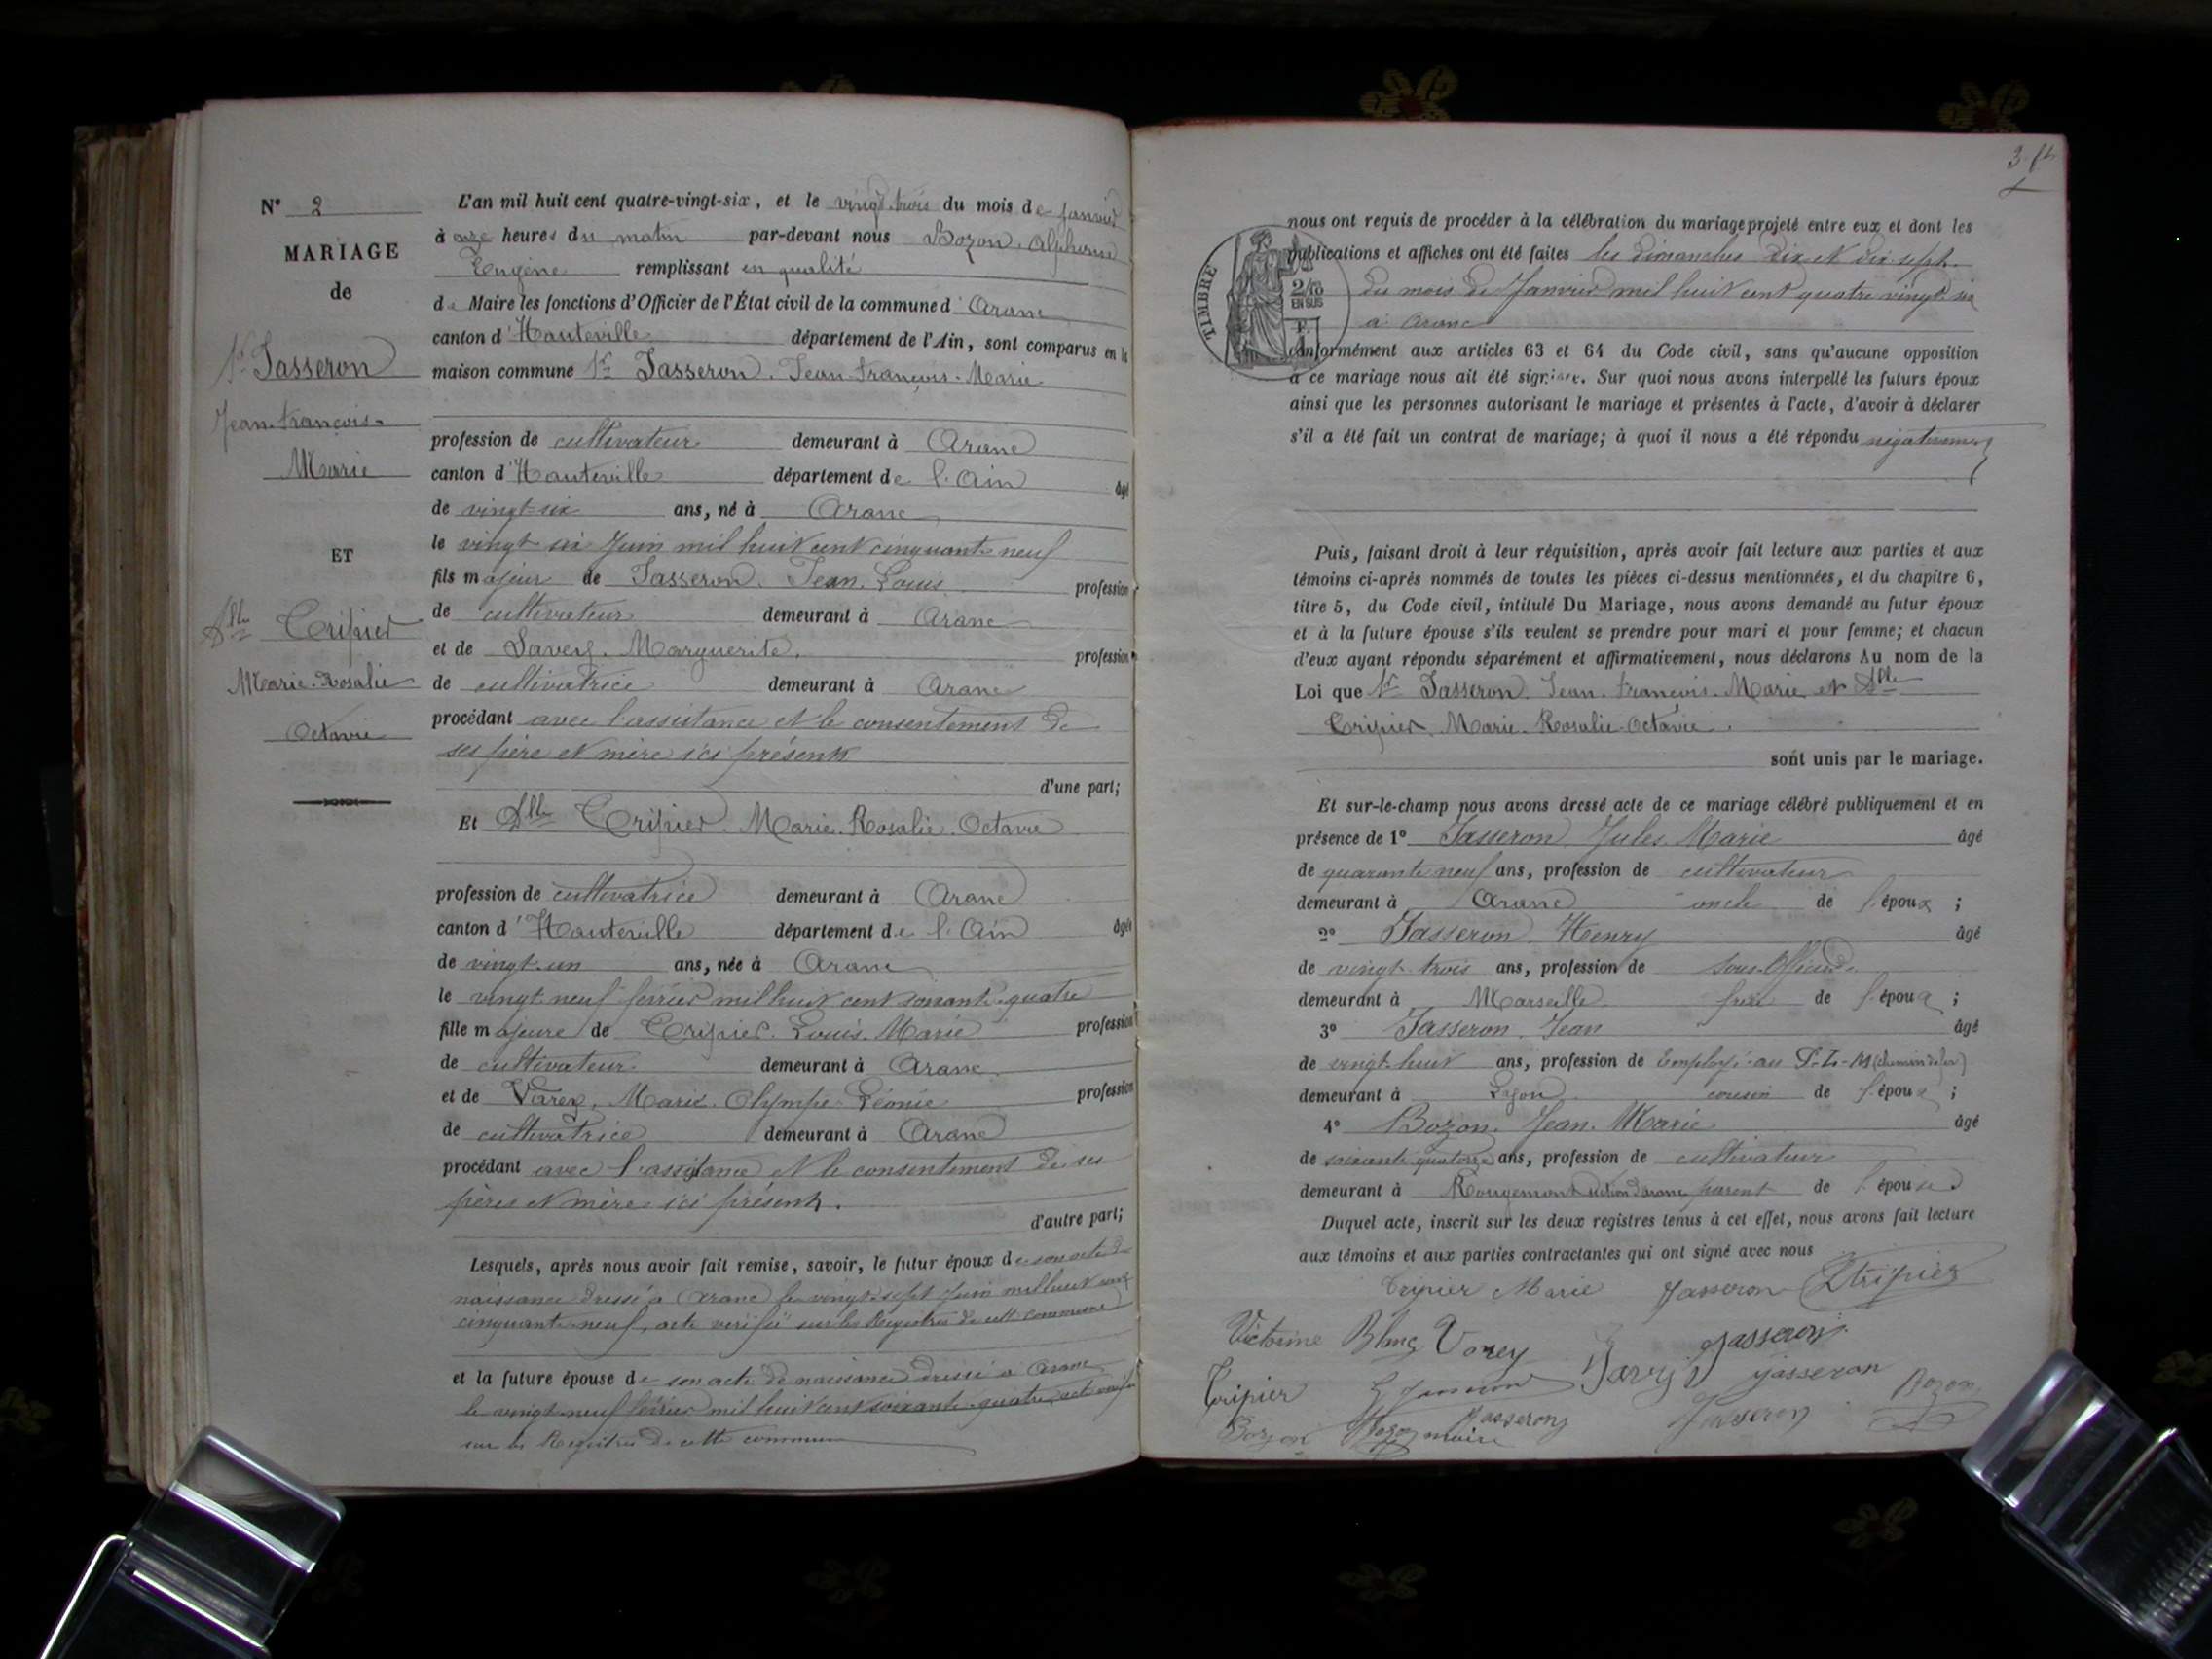 N° 2
MARIAGE
de
Sr Jasseron
Jean-François-
Marie
ET
Dlle Tripier
Marie-Rosalie
Octavie
L'an mil huit cent quatre-vingt-six, et le vingt-trois du mois de Janvier
à onze heures du matin par-devant nous Bozon, Alphonse
Eugène remplissant en qualité
de Maire les fonctions d'Officier de l'État civil de la commune d'Aranc
canton d'Hauteville département de l'Ain, sont comparus en la
maison commune Sr Jasseron, Jean-François-Marie
profession de cultivateur demeurant à Aranc
canton d'Hauteville département de l'Ain âgé
de vingt-six ans, né à Aranc
le vingt six Juin mil huit cent cinquante-neuf
fils majeur de Jasseron, Jean-Louis profession
de cultivateur demeurant à Aranc
et de Savey, Marguerite, profession
de cultivatrice demeurant à Aranc
procédant avec l'assistance et le consentement de
ses père et mère ici présents
d'une part;
Et Dlle Tripier, Marie-Rosalie-Octavie
profession de cultivatrice demeurant à Aranc
canton d'Hauteville département de l'Ain âgée
de vingt-un ans, née à Aranc
le vingt-neuf février mil huit cent soixante-quatre
fille majeure de Tripier, Louis-Marie profession
de cultivateur demeurant à Aranc
et de Varey, Marie-Olympe-Léonie profession
de cultivatrice demeurant à Aranc
procédant avec l'assistance et le consentement de ses
pères et mère ici présents.
d'autre part;
Lesquels, après nous avoir fait remise, savoir, le futur époux de son acte de
naissance dressé à Aranc le vingt-sept Juin mil huit cent
cinquante-neuf, acte vérifié sur les Registres de cette commune
et la future épouse de son acte de naissance dressé à Aranc
le vingt-neuf février mil huit cent soixante-quatre, acte vérifié
sur les Registres de cette commune
TIMBRE
2/10
EN SUS
nous ont requis de procéder à la célébration du mariage projeté entre eux et dont les
publications et affiches ont été faites les Dimanches Dix et Dix-sept
du mois de Janvier mil huit cent quatre vingt-six
à Aranc
conformément aux articles 63 et 64 du Code civil, sans qu'aucune opposition
à ce mariage nous ait été signifiée. Sur quoi nous avons interpellé les futurs époux
ainsi que les personnes autorisant le mariage et présentes à l'acte, d'avoir à déclarer
s'il a été fait un contrat de mariage; à quoi il nous a été répondu négativement
Puis, faisant droit à leur réquisition, après avoir fait lecture aux parties et aux
témoins ci-après nommés de toutes les pièces ci-dessus mentionnées, et du chapitre 6,
titre 5, du Code civil, intitulé Du Mariage, nous avons demandé au futur époux
et à la future épouse s'ils veulent se prendre pour mari et pour femme; et chacun
d'eux ayant répondu séparément et affirmativement, nous déclarons Au nom de la
Loi que Sr Jasseron, Jean-François-Marie et Dlle
Tripier, Marie-Rosalie-Octavie.
sont unis par le mariage.
Et sur-le-champ nous avons dressé acte de ce mariage célébré publiquement et en
présence de 1° Jasseron, Jules Marie âgé
de quarante neuf ans, profession de cultivateur
demeurant à Aranc oncle de l'époux ;
2° Jasseron, Henry âgé
de vingt-trois ans, profession de Sous-Officier
demeurant à Marseille frère de l'époux ;
3° Jasseron, Jean âgé
de vingt-huit ans, profession de Employé au P-L-M (chemin de fer)
demeurant à Lyon cousin de l'époux ;
4° Bozon, Jean-Marie âgé
de soixante quatorze ans, profession de cultivateur
demeurant à Rougemont section d'Aranc parent de l'épouse
Duquel acte, inscrit sur les deux registres tenus à cet effet, nous avons fait lecture
aux témoins et aux parties contractantes qui ont signé avec nous
Tripier Marie Jasseron Ltripier
Victorine Blanc Varey Jasseron
Tripier Savey Jasseron Bozon
Bozon maire Jasseron Jasseron